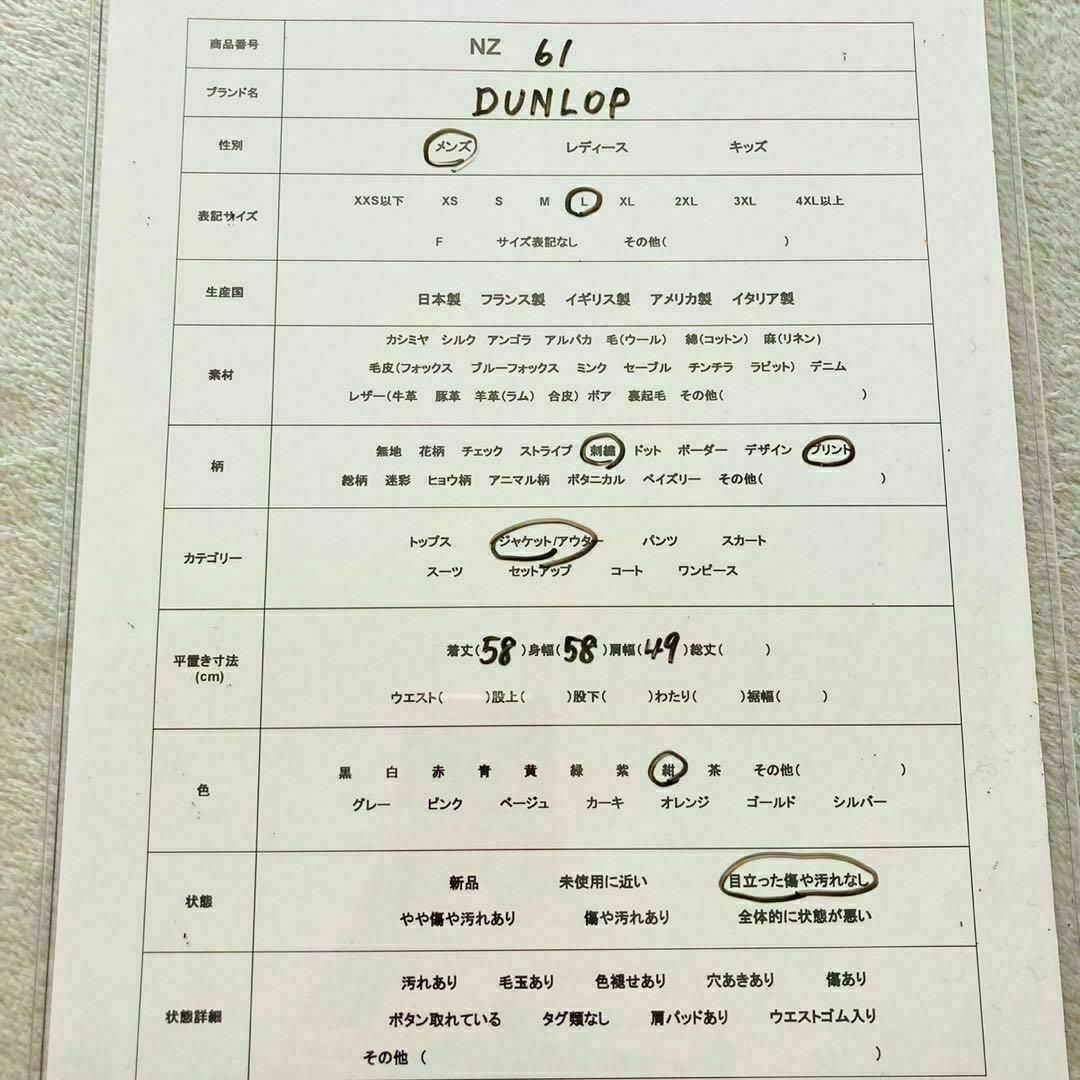 商品番号 NZ 61
ブランド名 DUNLOP
性別 メンズ レディース キッズ
表記サイズ XXS以下 XS S M L XL 2XL 3XL 4XL以上
F サイズ表記なし その他( )
生産国 日本製 フランス製 イギリス製 アメリカ製 イタリア製
素材 カシミヤ シルク アンゴラ アルパカ 毛(ウール) 綿(コットン) 麻(リネン)
毛皮(フォックス ブルーフォックス ミンク セーブル チンチラ ラビット) デニム
レザー(牛革 豚革 羊革(ラム) 合皮) ボア 裏起毛 その他( )
柄 無地 花柄 チェック ストライプ 刺繍 ドット ボーダー デザイン プリント
総柄 迷彩 ヒョウ柄 アニマル柄 ボタニカル ペイズリー その他( )
カテゴリー トップス ジャケット/アウター パンツ スカート
スーツ セットアップ コート ワンピース
平置き寸法 (cm) 着丈(58)身幅(58)肩幅(49)総丈( )
ウエスト( )股上( )股下( )わたり( )裾幅( )
色 黒 白 赤 青 黄 緑 紫 紺 茶 その他( )
グレー ピンク ベージュ カーキ オレンジ ゴールド シルバー
状態 新品 未使用に近い 目立った傷や汚れなし
やや傷や汚れあり 傷や汚れあり 全体的に状態が悪い
状態詳細 汚れあり 毛玉あり 色褪せあり 穴あきあり 傷あり
ボタン取れている タグ類なし 肩パッドあり ウエストゴム入り
その他 ( )